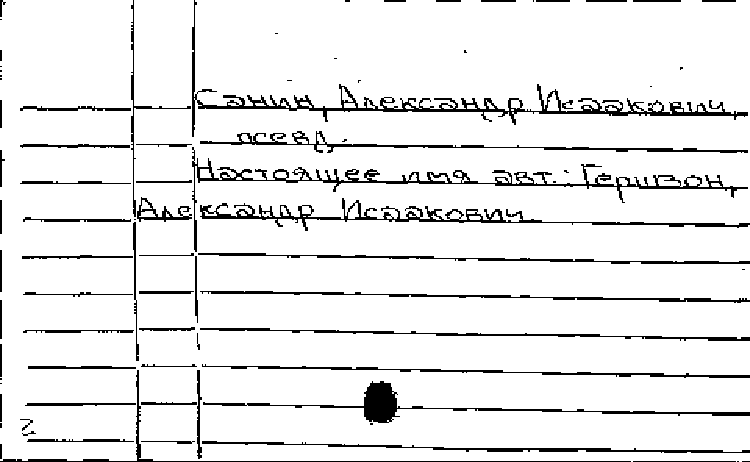 Санин, Александр Исаакович,
псевд.
Настоящее имя авт.: Геривон,
Александр Исаакович.
2